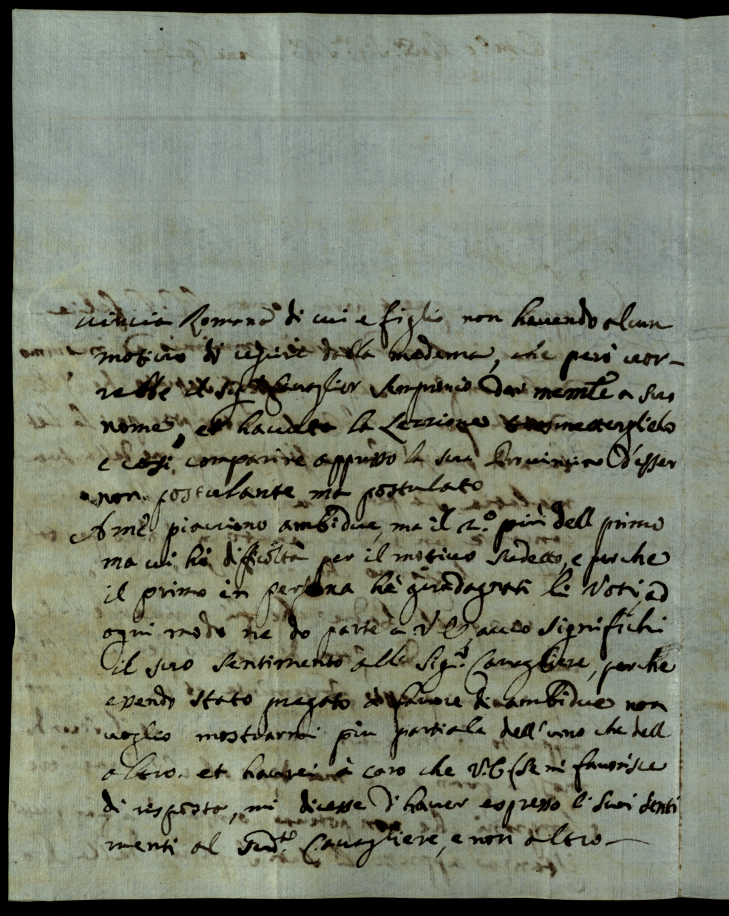 vincia Romana di cui e figlio non havendo alcun
motivo di uscire dalla medema, che però vor-
rebbe il Sigr Cavaglier Sempronio a suo
nome, et havuta la Lezzione trasmetterglielo
e così comparire appresso la sua Provincia d'esser
non postulante ma postulato
A me piacciono ambidue, ma il 2.º più dell primo
ma cui hò difficoltà per il motivo sudetto, e perche
il primo in persona hà guadagnati li Voti, ad
ogni modo ne do parte à V E, acciò significhi
il suo sentimento all Sigr. Cavagliere, perche
essendo stato pregato di favore di ambidue non
voglio mostrarmi più partiale dell'uno che dell
altro. et haurei à caro che V.E (se mi favorisce
di risposta, mi dicesse d'haver espresso li suoi senti
menti al Sudto. Cavagliere, e non altro—